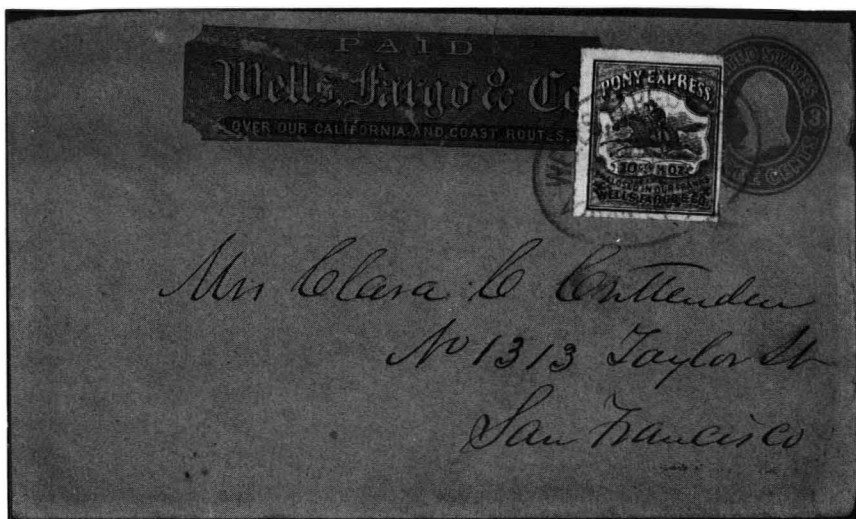 PAID
Wells, Fargo & Co
OVER OUR CALIFORNIA AND COAST ROUTES.
PONY EXPRESS.
WELLS, FARGO & CO.
Mrs Clara C Crittenden
No 1313 Taylor St
San Francisco